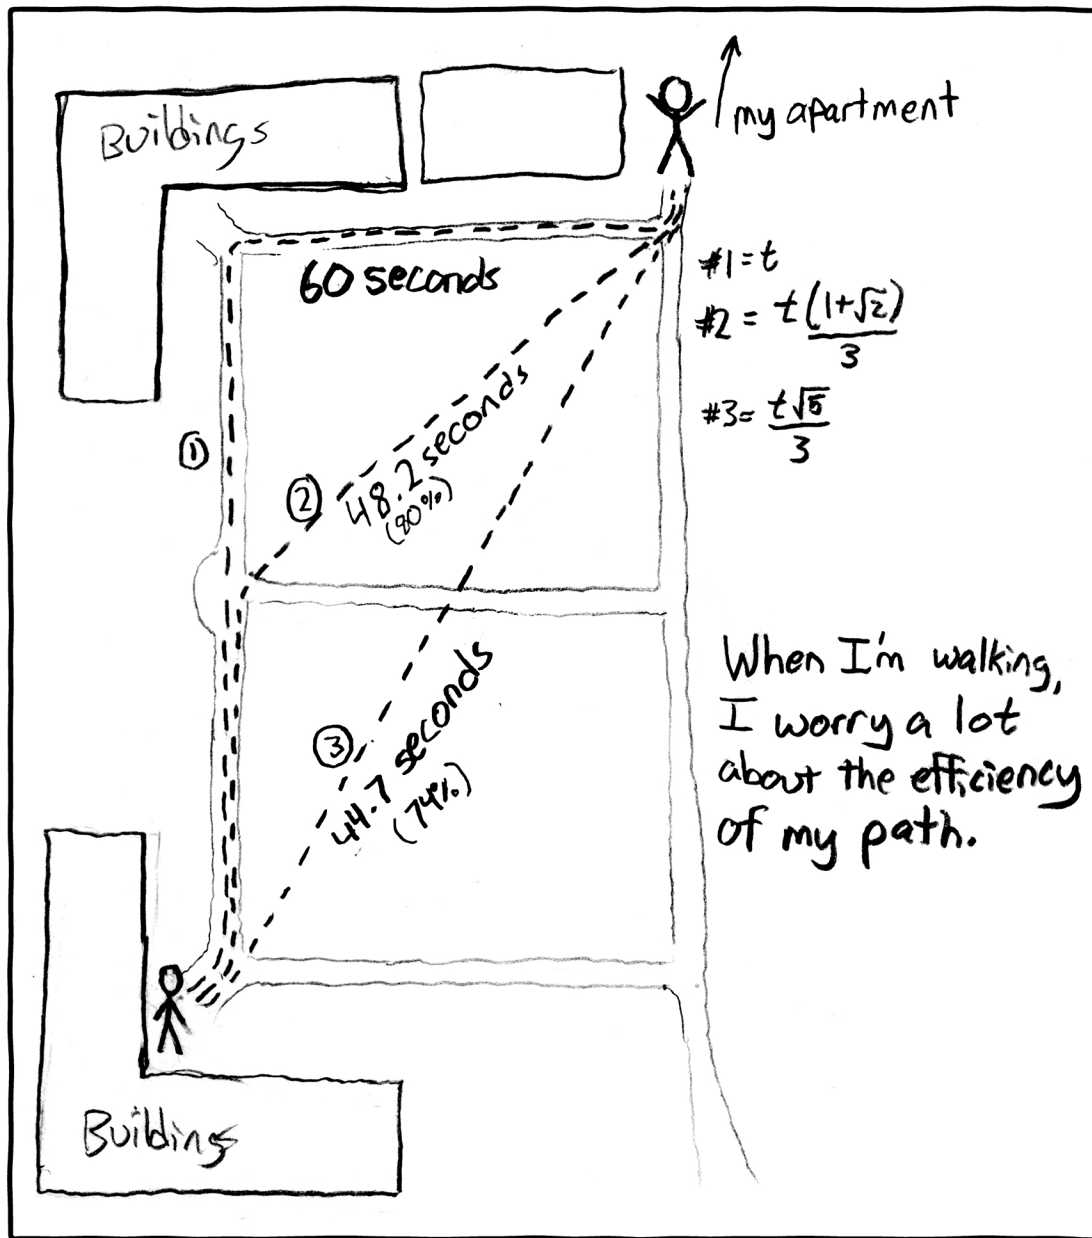 Buildings
my apartment
60 seconds
#1 = t
#2 = t(1+√2)
3
#3 = t√5
3
①
②
48.2 seconds
(80%)
③
44.7 seconds
(74%)
When I'm walking,
I worry a lot
about the efficiency
of my path.
Buildings